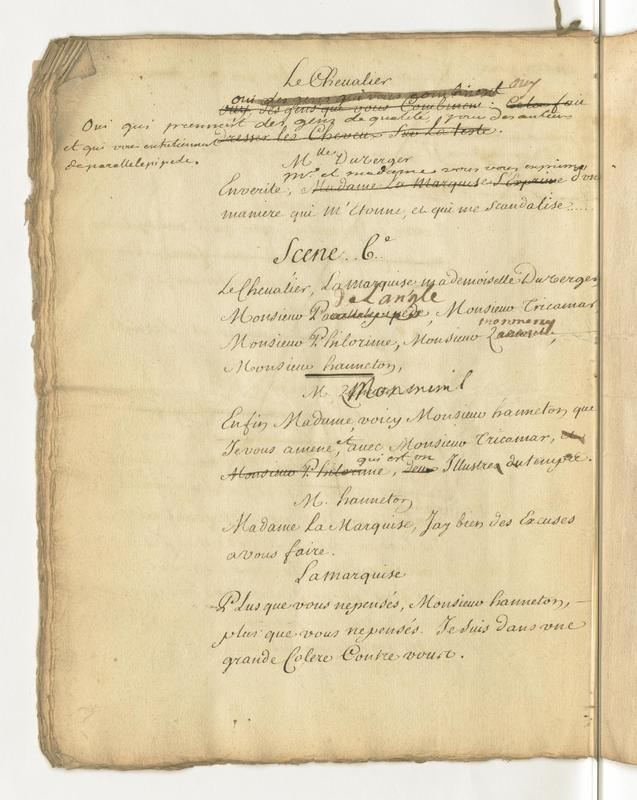 Le Chevalier
oui des gens qui vous combinent ouy
ouy, des gens que vous Combinent. Cela fait
Oui qui prennent des genz de qualité, pour des auteurs
et qui vous entretiennent dresser les Cheveux Sur La teste.
de parallelepipede.
M.lle Duverger
mr. et madame vous vous exprimez
En verité, Madame La Marquise S'Exprime d'une
maniere qui m'Etonne, et qui me Scandalise.....
Scene. 6.e
Le Chevalier, La marquise, mademoiselle Duverger,
de Langle
Monsieur Parallelepipede, Monsieur Tricamar
Monsieur Philorime, Monsieur
Monsieur hanneton,
M.
Enfin Madame, voicy Monsieur hanneton que
Je vous amene, et avec Monsieur Tricamar, et
qui est un
Monsieur Philorime, deux Illustres du temps.
M. hanneton
Madame La Marquise, Jay bien des Excuses
a vous faire.
La marquise
Plus que vous ne pensés, Monsieur hanneton,
plus que vous ne pensés. Je Suis dans une
grande Colere Contre vous.